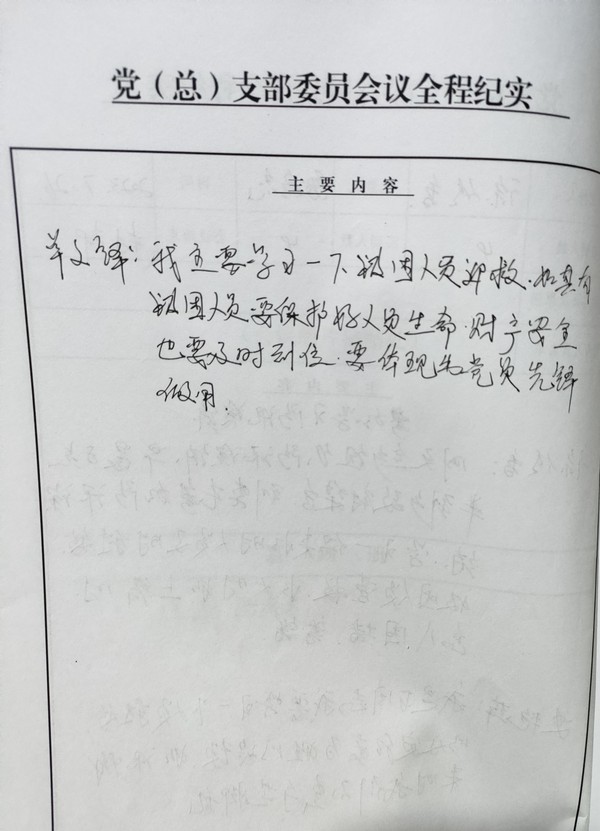 党（总）支部委员会议全程纪实
主要内容
羊文锋：我主要学习一下被困人员迎救．如真有
被困人员要保护好人员生命．财产安全
也要及时到位．要体现出党员先锋
做用．